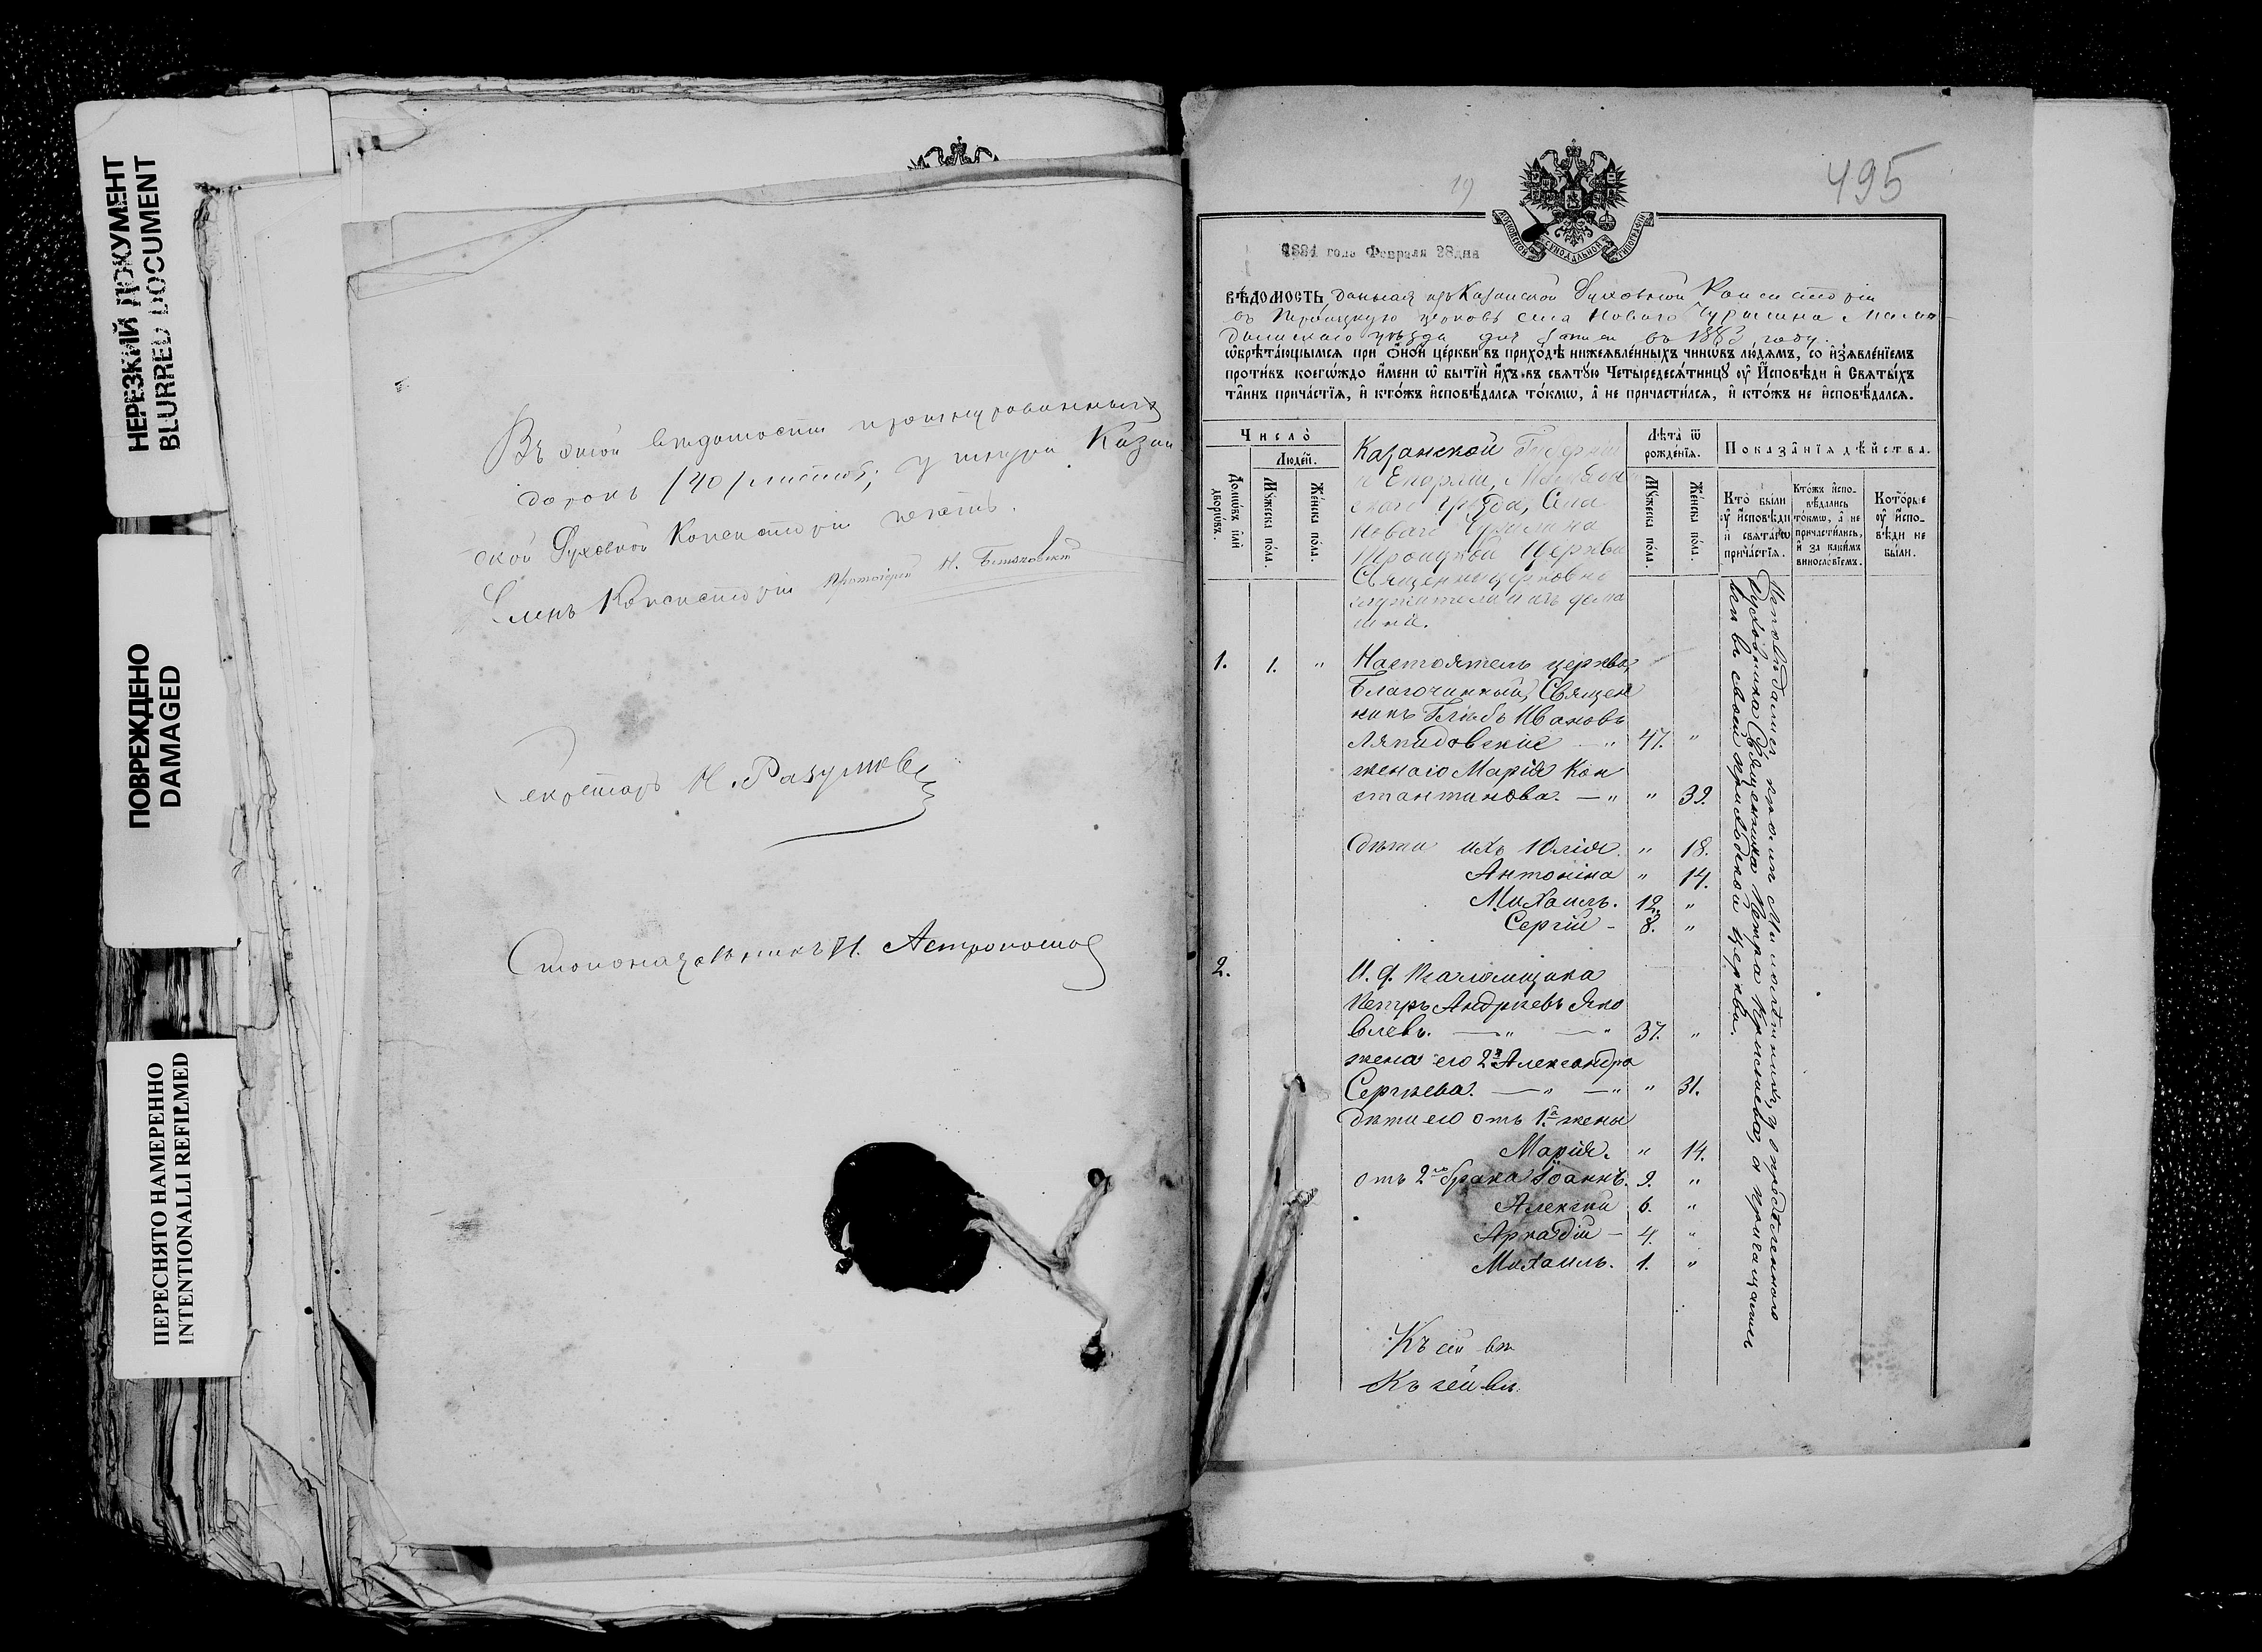 НЕРЕЗКИЙ ДОКУМЕНТ
BLURRED DOCUMENT
ПОВРЕЖДЕНО
DAMAGED
ПЕРЕСНЯТО НАМЕРЕННО
INTENTIONALLI REFILMED
Въ этой вѣдомости пронумерованныхъ
сорокъ /40/ листовъ; у шнура Казан
ской Духовной Консисторіи печать.
Членъ Консисторіи Протоіерей Н.
Секретарь Н. Разумовъ
Столоначальникъ И. Астрономовъ
495
19
1884 годъ Февраля 28 дня
ВѢДОМОСТЬ данная изъ Казанской Духовной Консисторіи
въ Троицкую церковь села Новаго Чурилина Мама-
дышскаго уѣзда для записи въ 1883 году.
ѡбрѣтающымся при оной церкви въ приходѣ нижеявленныхъ чинѡвъ людямъ, со изъявленіемъ
противъ коегѡждо имени ѡ бытіи ихъ въ святую Четыредесятницу оу Исповѣди и Святыхъ
таинъ причастія, и ктожъ исповѣдался токмѡ, а не причастился, и ктожъ не исповѣдался.
Число
Людей.
Домѡвъ или дворѡвъ.
Мужеска пола.
Женска пола.
Казанской Губерніи
и Епархіи, Мамадыш
скаго уѣзда, Села
Новаго Чурилина
Троицкой Церкви
Священноцерковно
служители и ихъ дома
шніе.
Лѣта ѿ рожденія.
Мужеска пола.
Женска пола.
Показанія дѣйства.
Кто были оу исповѣди и святагѡ причастія.
Ктожъ исповѣдались токмѡ, а не причастились, и за какимъ винословіемъ.
Которые оу исповѣди не были.
1. 1. " Настоятель церкви,
Благочинный, Священ
никъ Глѣбъ Ивановъ
Ляпидовскій — " 47. "
жена его Марія Кон
стантинова. — " " 39.
Дѣти ихъ Юлія. " 18.
Антонина " 14.
Михаилъ. 12. "
Сергій - 8. "
2. И. д. Псаломщика
Петръ Андріевъ Яко
влевъ. — " — " 37. "
жена его 2я Александра
Сергѣева. — " — " " 31.
Дѣти его отъ 1й жены
Марія. " 14.
отъ 2го брака Іоаннъ. 9. "
Алексій 6. "
Аркадій - 4. "
Михаилъ. 1. "
Исповѣдались,
Духовника Священника Петра а причащались
вси въ своей приходской церкви.
Къ сей вѣ
Къ сей вѣ.